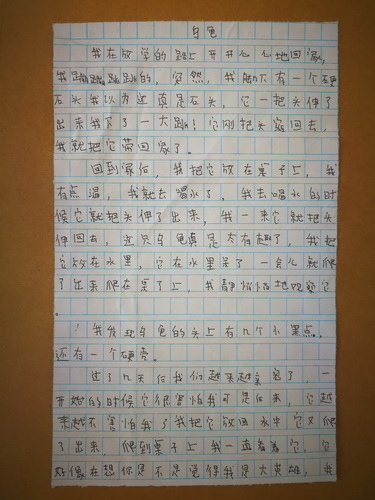 乌龟
我在放学的路上开开心心地回家，
我蹦蹦跳跳的，突然，我脚下有一个硬
石头我以为这真是石头，它一把头伸了
出来我下了一大跳！它刚把头缩回去，
我就把它带回家了。
回到家后，我把它放在桌子上，我
有点渴，我就去喝水了，我去喝水的时
候它就把头伸了出来，我一来它就把头
伸回去，这只乌龟真是太有趣了，我把
它放在水里，它在水里呆了一会儿就爬
了出来爬在桌子上，我静悄悄地观察它
。
我发现乌龟的头上有几个小黑点，
还有一个硬壳。
过了几天后我们越来越亲密了，一
开始的时候它很害怕我可是后来，它越
来越不害怕我了我把它放回水中它又爬
了出来，爬到桌子上我一直看着它，它
好像在想你是不是觉得我是大英雄，我